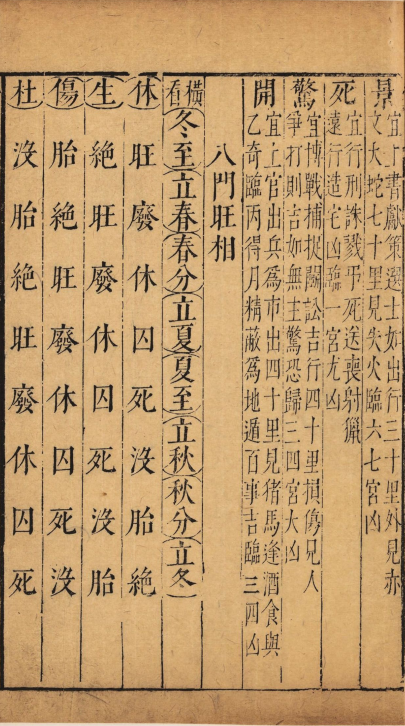 景宜上書獻策選士如出行三十里外見赤
文大蛇七十里見失火臨六七宮凶
死宜行刑誅戮弔死送喪射獵
遠行造宅凶臨一宮尤凶
驚宜博戰捕捉鬭訟吉行四十里損傷見人
爭打則吉如無主驚恐歸三四宮大凶
開宜上官出兵為市出四十里見猪馬逢酒食與
乙奇臨丙得月精蔽為地遁百事吉臨三四凶
八門旺相
橫看冬至立春春分立夏夏至立秋秋分立冬
休旺廢休囚死沒胎絕
生絕旺廢休囚死沒胎
傷胎絕旺廢休囚死沒
杜沒胎絕旺廢休囚死